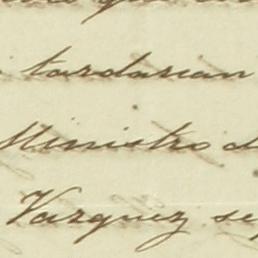 tardarian
Ministro d
Vazquez se